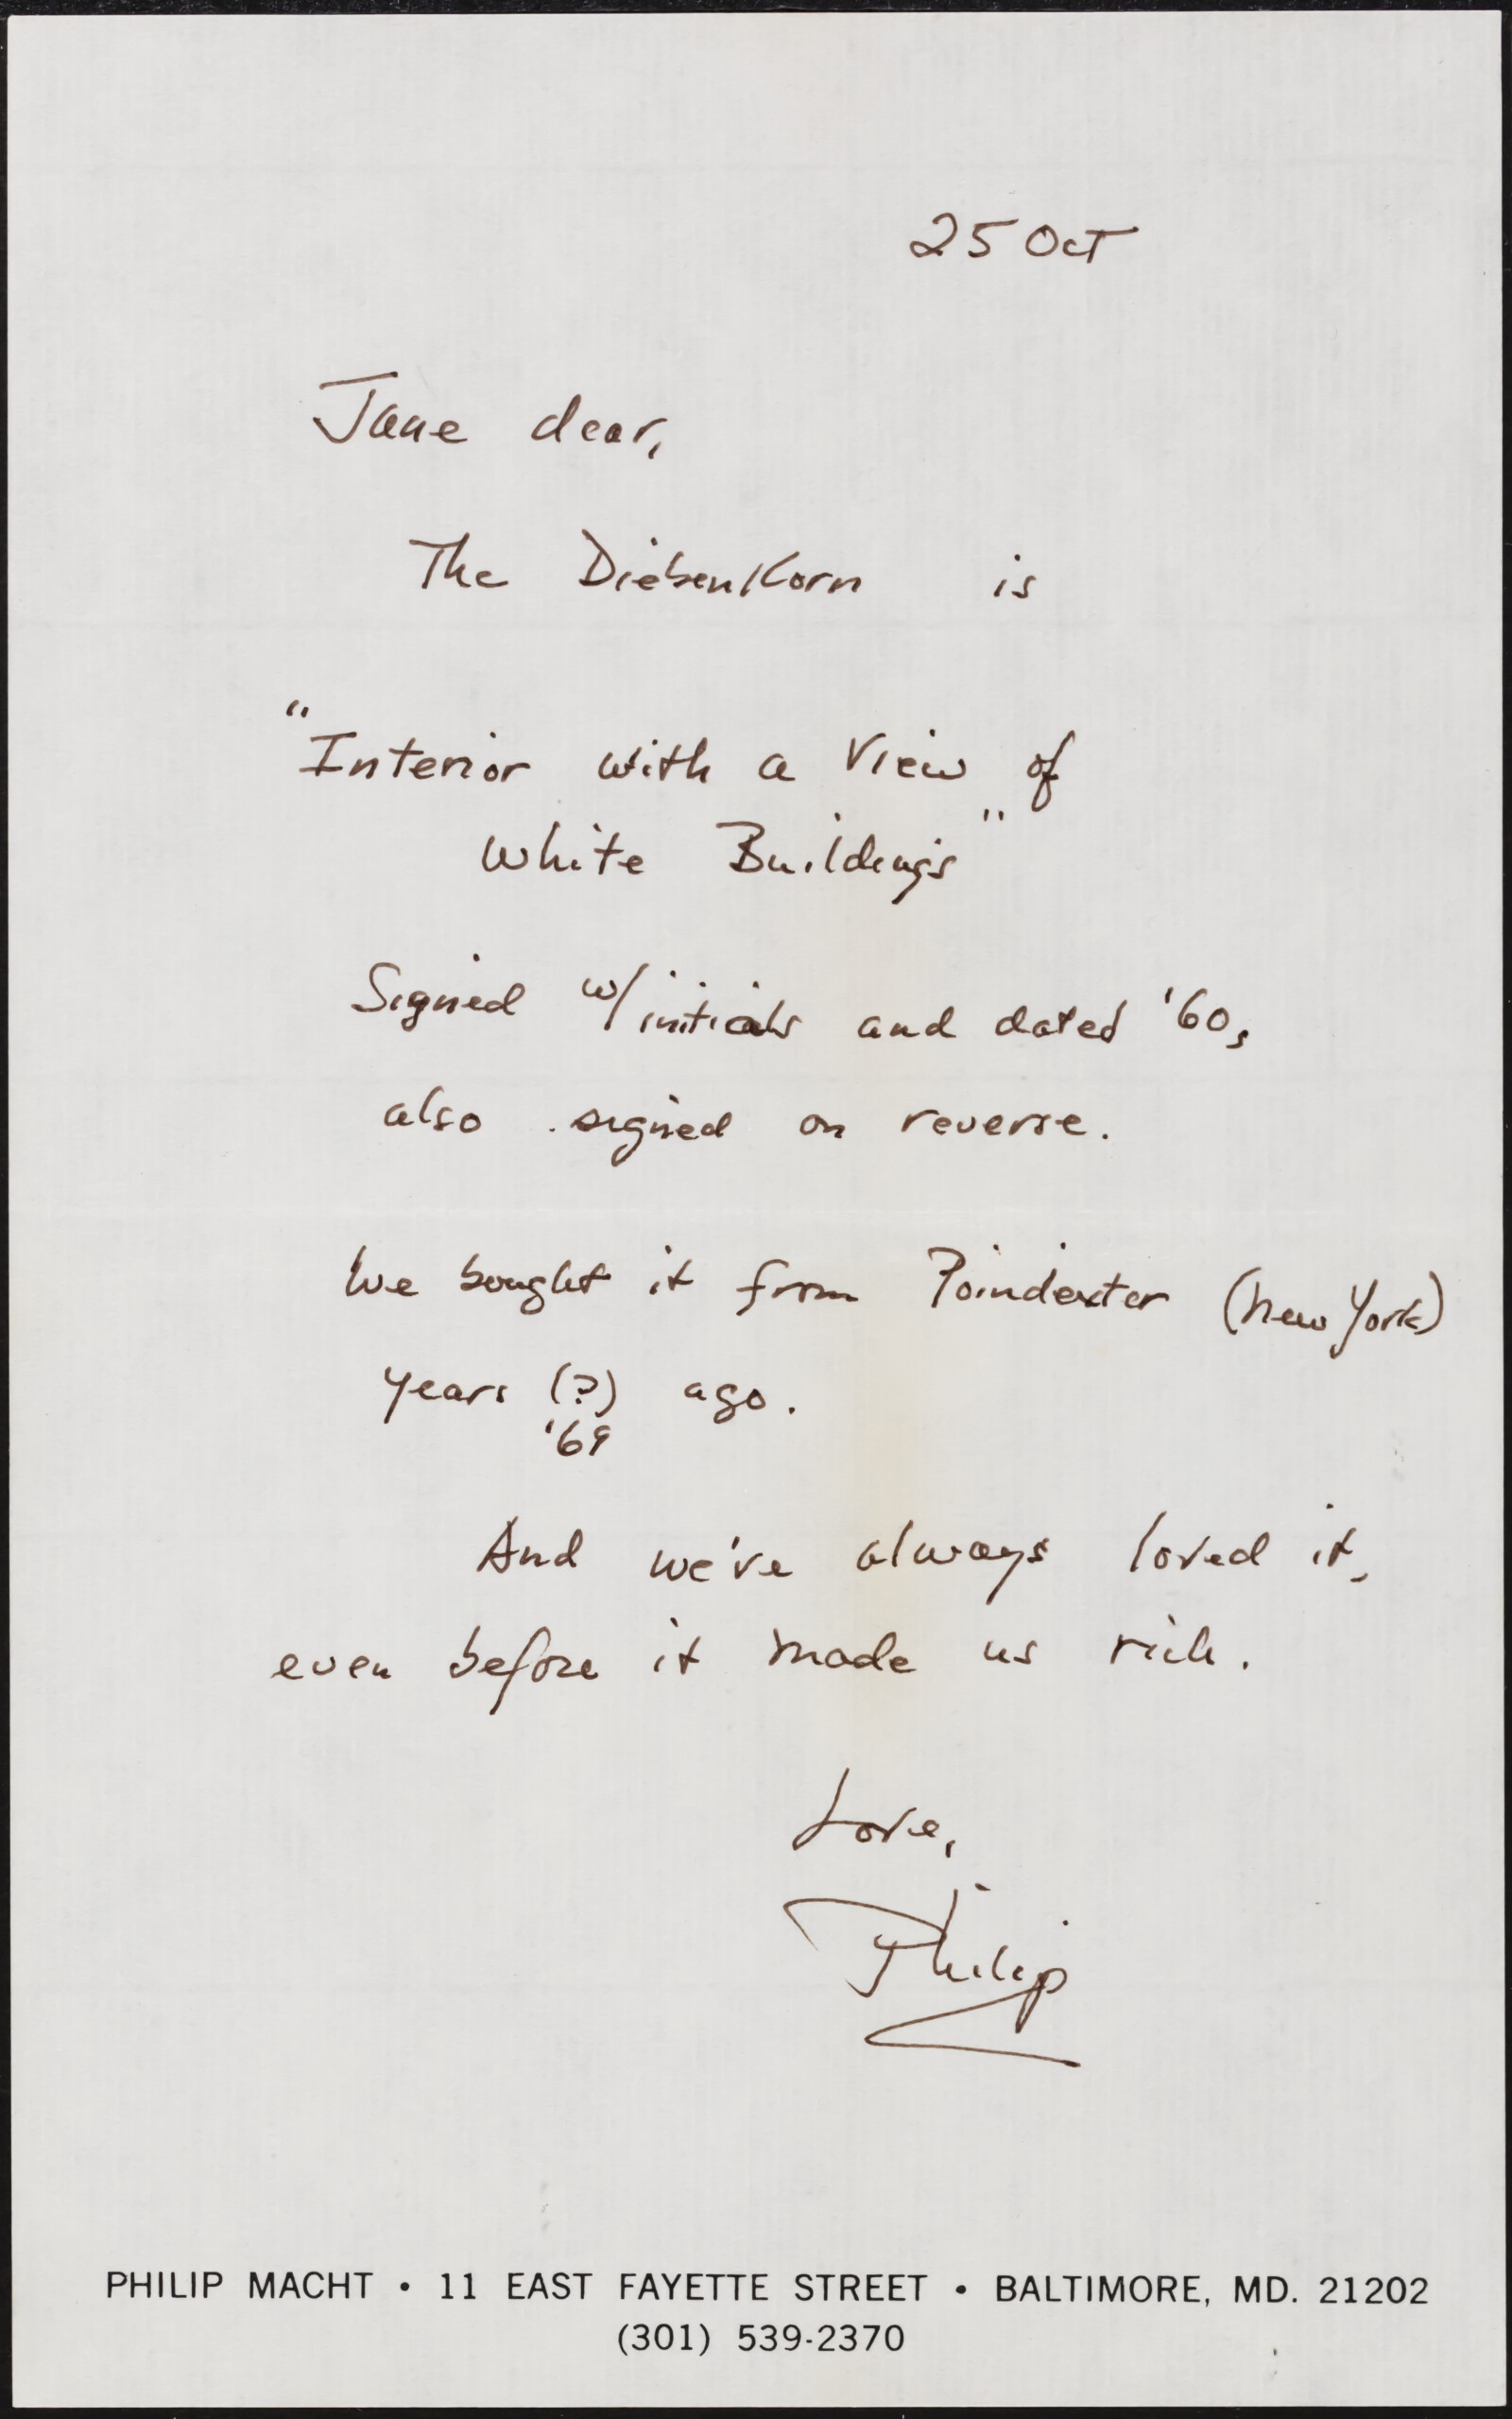 25 Oct
Jane dear,
The Diebenkorn is
"Interior with a View of
White Buildings"
Signed w/initials and dated '60,
also signed on reverse.
We bought it from Poindexter (New York)
years (?) ago.
'69
And we've always loved it,
even before it made us rich.
Love,
Philip
PHILIP MACHT • 11 EAST FAYETTE STREET • BALTIMORE, MD. 21202
(301) 539-2370